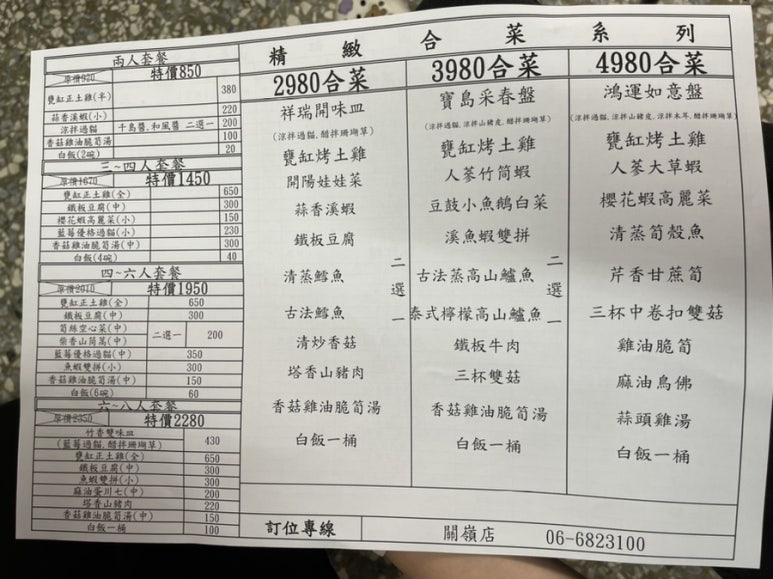 兩人套餐
原價920 特價850
甕缸正土雞(半) 380
蒜香溪蝦(小) 220
涼拌過貓 千島醬.和風醬 二選一 200
香菇雞油脆筍湯 100
白飯(2碗) 20
三~四人套餐
原價1670 特價1450
甕缸正土雞(全) 650
鐵板豆腐(中) 300
櫻花蝦高麗菜(小) 150
藍莓優格過貓(小) 230
香菇雞油脆筍湯(中) 300
白飯(4碗) 40
四~六人套餐
特價1950
甕缸正土雞(全) 650
鐵板豆腐(中) 300
筍絲空心菜(中)
柴香山茼萵(中) 二選一 200
藍莓優格過貓(中) 350
魚蝦雙拼(小) 300
香菇雞油脆筍湯(中) 150
白飯(6碗) 60
六~八人套餐
原價2350 特價2280
竹香雙味皿
(藍莓過貓.醋拌珊瑚草) 430
甕缸正土雞(全) 650
鐵板豆腐(中) 300
魚蝦雙拼(小) 300
麻油蛋川七(中) 200
塔香山豬肉 220
香菇雞油脆筍湯(中) 150
白飯一桶 100
精緻合菜系列
2980合菜
祥瑞開味皿
(涼拌過貓.醋拌珊瑚草)
甕缸烤土雞
開陽娃娃菜
蒜香溪蝦
鐵板豆腐
清蒸鱈魚
古法鱈魚
二選一
清炒香菇
塔香山豬肉
香菇雞油脆筍湯
白飯一桶
3980合菜
寶島采春盤
(涼拌過貓.涼拌山豬皮.醋拌珊瑚草)
甕缸烤土雞
人蔘竹筒蝦
豆鼓小魚鵝白菜
溪魚蝦雙拼
古法蒸高山鱸魚
泰式檸檬高山鱸魚
二選一
鐵板牛肉
三杯雙菇
香菇雞油脆筍湯
白飯一桶
4980合菜
鴻運如意盤
(涼拌過貓.涼拌山豬皮.涼拌木耳.醋拌珊瑚草)
甕缸烤土雞
人蔘大草蝦
櫻花蝦高麗菜
清蒸筍殼魚
芹香甘蔗筍
三杯中卷扣雙菇
雞油脆筍
麻油鳥佛
蒜頭雞湯
白飯一桶
訂位專線 關嶺店 06-6823100